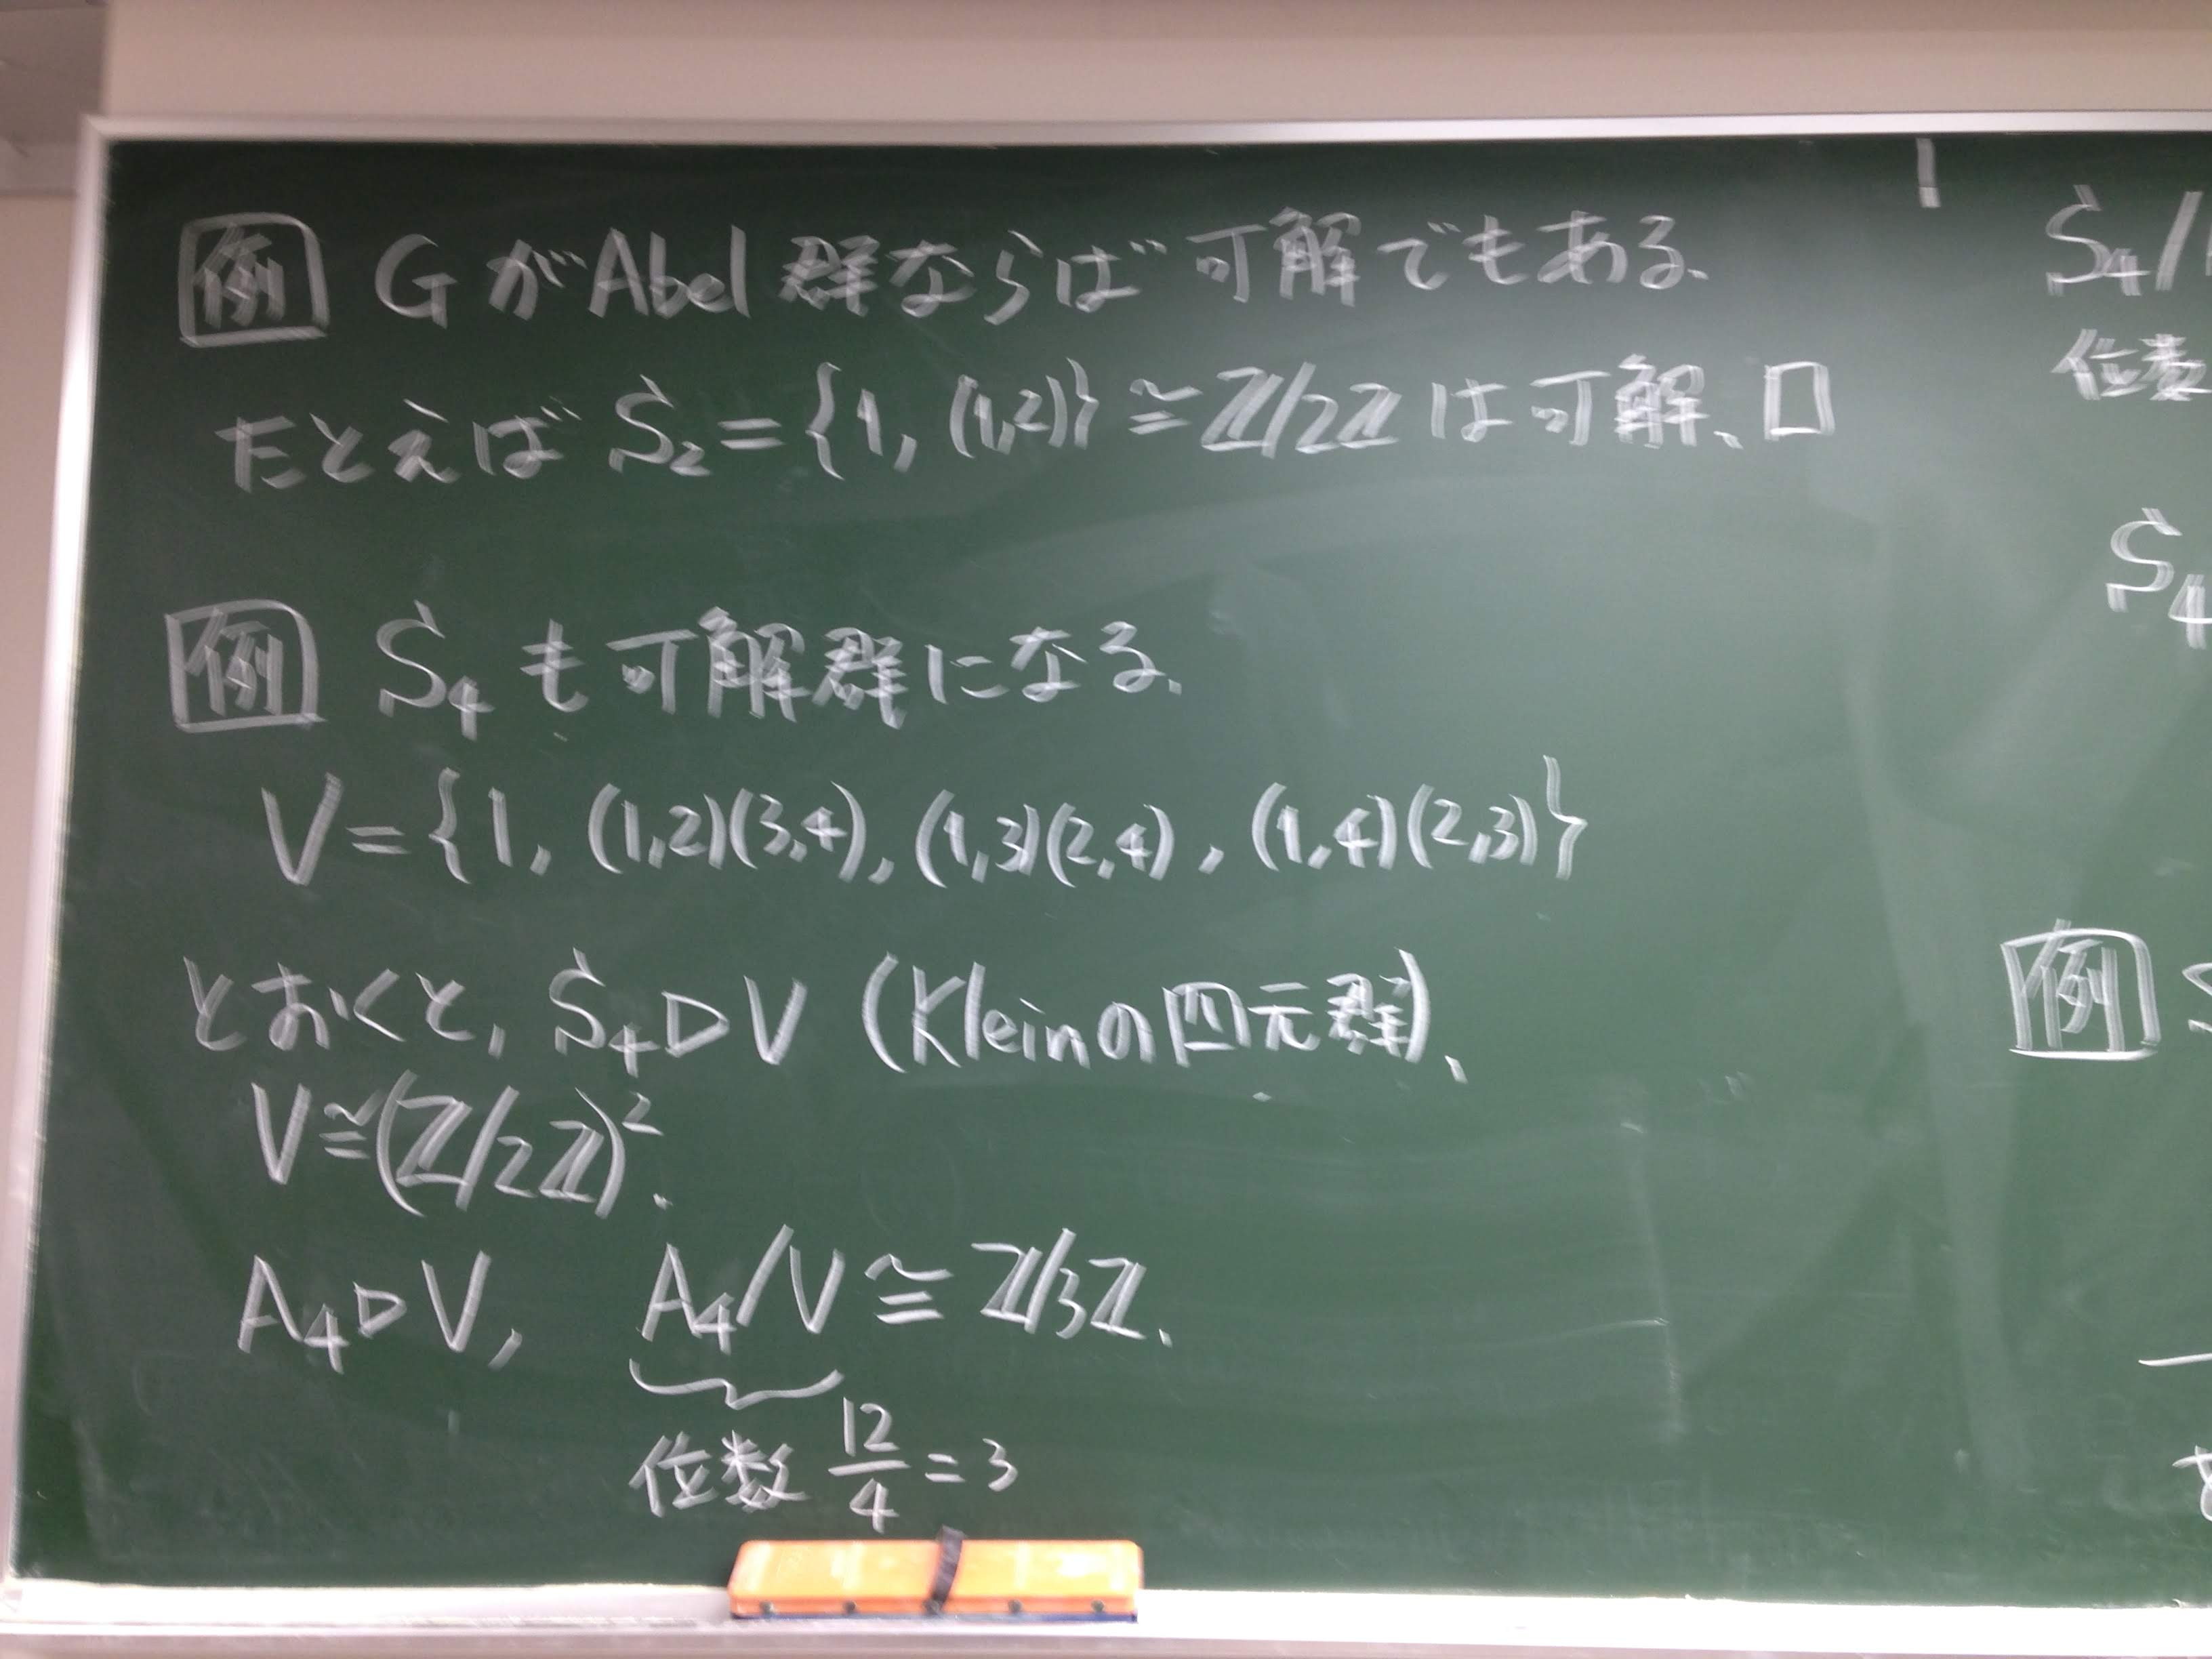 例 GがAbel群ならば可解でもある.
たとえば S₂ = {1, (1,2)} ≅ ℤ/2ℤ は可解. □
例 S₄も可解群になる.
V = {1, (1,2)(3,4), (1,3)(2,4), (1,4)(2,3)}
とおくと, S₄ ▷ V (Kleinの四元群).
V ≅ (ℤ/2ℤ)².
A₄ ▷ V, A₄/V ≅ ℤ/3ℤ.
位数 12/4 = 3
S₄/
位数
S₄
例